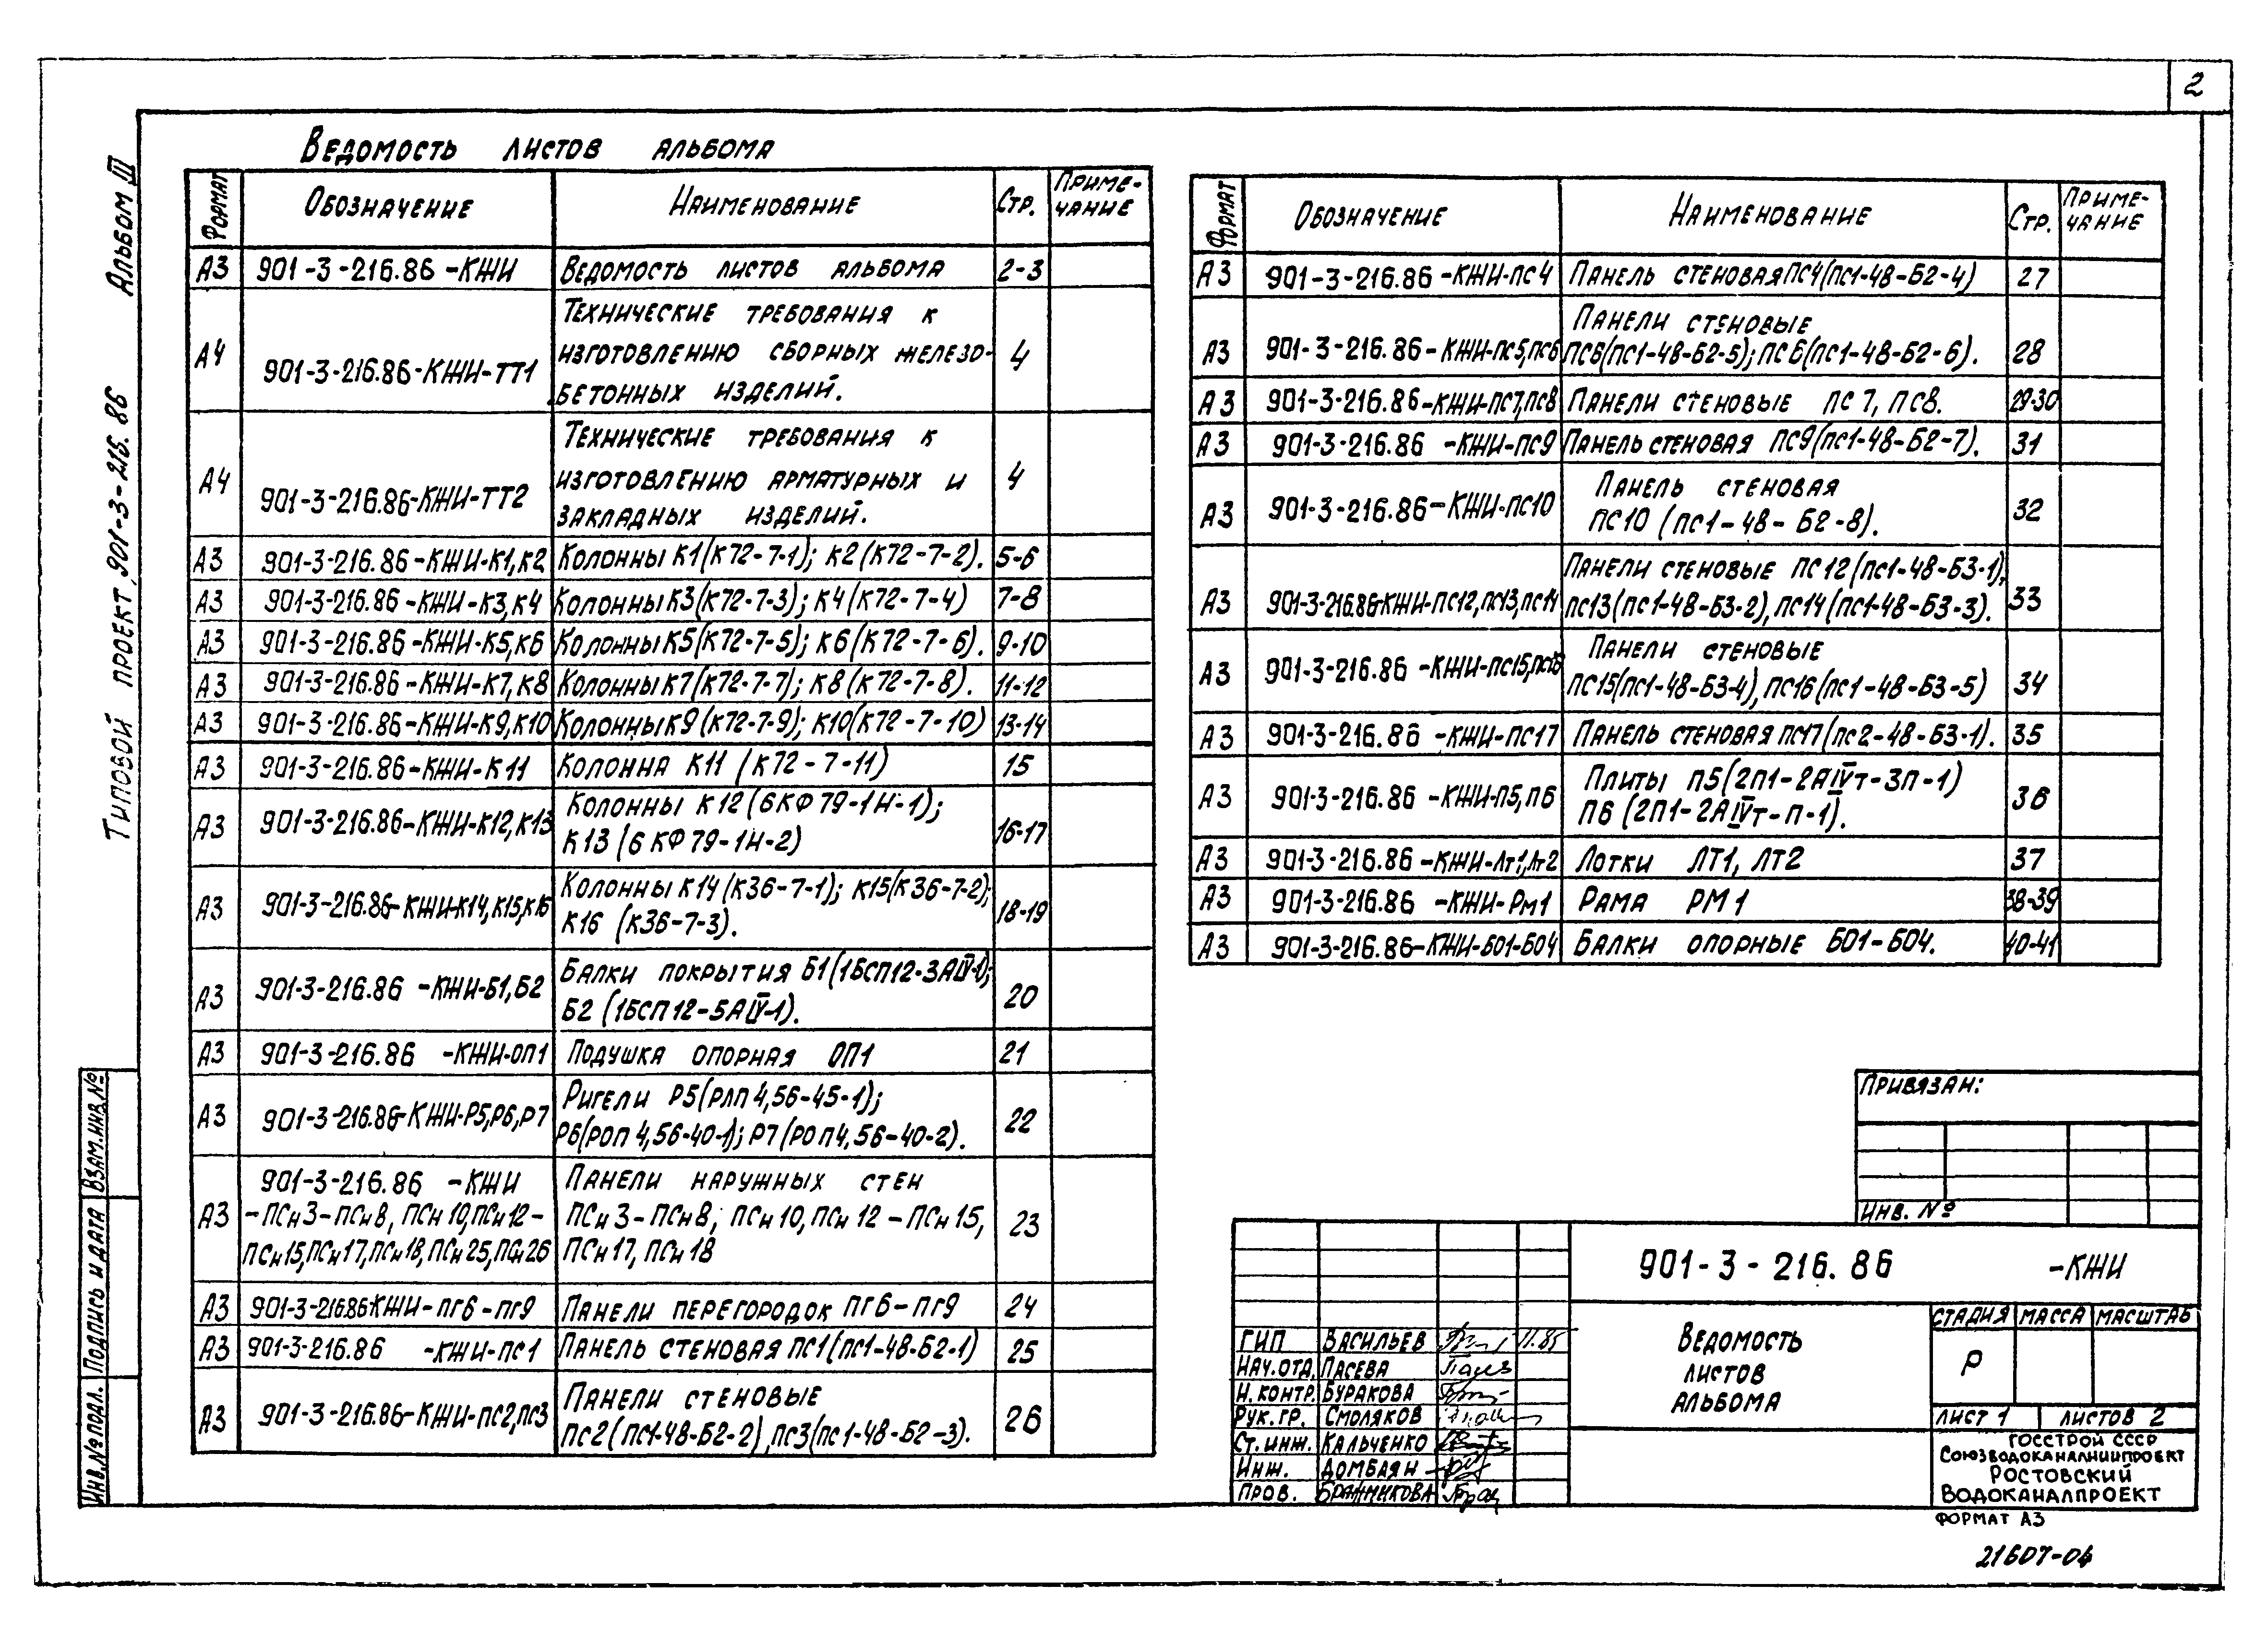 2
Ведомость листов альбома
Формат Обозначение Наименование Стр. Приме-
чание
А3 901-3-216.86-КЖИ Ведомость листов альбома 2-3
А4 901-3-216.86-КЖИ-ТТ1 Технические требования к
изготовлению сборных железо-
бетонных изделий. 4
А4 901-3-216.86-КЖИ-ТТ2 Технические требования к
изготовлению арматурных и
закладных изделий. 4
А3 901-3-216.86-КЖИ-К1,К2 Колонны К1(К72-7-1); К2(К72-7-2). 5-6
А3 901-3-216.86-КЖИ-К3,К4 Колонны К3(К72-7-3); К4(К72-7-4) 7-8
А3 901-3-216.86-КЖИ-К5,К6 Колонны К5(К72-7-5); К6(К72-7-6). 9-10
А3 901-3-216.86-КЖИ-К7,К8 Колонны К7(К72-7-7); К8(К72-7-8). 11-12
А3 901-3-216.86-КЖИ-К9,К10 Колонны К9(К72-7-9); К10(К72-7-10) 13-14
А3 901-3-216.86-КЖИ-К11 Колонна К11 (К72-7-11) 15
А3 901-3-216.86-КЖИ-К12,К13 Колонны К12(6КФ79-1Н-1);
К13(6КФ79-1Н-2) 16-17
А3 901-3-216.86-КЖИ-К14,К15,К16 Колонны К14(К36-7-1); К15(К36-7-2);
К16 (К36-7-3). 18-19
А3 901-3-216.86-КЖИ-Б1,Б2 Балки покрытия Б1(1БСП12-3АIV-1);
Б2(1БСП12-5АIV-1). 20
А3 901-3-216.86-КЖИ-ОП1 Подушка опорная ОП1 21
А3 901-3-216.86-КЖИ-Р5,Р6,Р7 Ригели Р5(РЛП4,56-45-1);
Р6(РОП4,56-40-1); Р7(РОП4,56-40-2). 22
А3 901-3-216.86-КЖИ Панели наружных стен
-ПСн3-ПСн8, ПСн10,ПСн12- ПСн3-ПСн8, ПСн10,ПСн12-ПСн15, 23
ПСн15,ПСн17,ПСн18,ПСн25,ПСн26 ПСн17, ПСн18
А3 901-3-216.86-КЖИ-ПГ6-ПГ9 Панели перегородок ПГ6-ПГ9 24
А3 901-3-216.86-КЖИ-ПС1 Панель стеновая ПС1(ПС1-48-Б2-1) 25
А3 901-3-216.86-КЖИ-ПС2,ПС3 Панели стеновые
ПС2(ПС1-48-Б2-2),ПС3(ПС1-48-Б2-3). 26
Формат Обозначение Наименование Стр. Приме-
чание
А3 901-3-216.86-КЖИ-ПС4 Панель стеновая ПС4(ПС1-48-Б2-4) 27
А3 901-3-216.86-КЖИ-ПС5,ПС6 Панели стеновые
ПС6(ПС1-48-Б2-5); ПС6(ПС1-48-Б2-6). 28
А3 901-3-216.86-КЖИ-ПС7,ПС8 Панели стеновые ПС7, ПС8. 29-30
А3 901-3-216.86-КЖИ-ПС9 Панель стеновая ПС9(ПС1-48-Б2-7). 31
А3 901-3-216.86-КЖИ-ПС10 Панель стеновая
ПС10 (ПС1-48-Б2-8). 32
А3 901-3-216.86-КЖИ-ПС12,ПС13,ПС14 Панели стеновые ПС12(ПС1-48-Б3-1),
ПС13(ПС1-48-Б3-2), ПС14(ПС1-48-Б3-3). 33
А3 901-3-216.86-КЖИ-ПС15,ПС16 Панели стеновые
ПС15(ПС1-48-Б3-4), ПС16(ПС1-48-Б3-5) 34
А3 901-3-216.86-КЖИ-ПС17 Панель стеновая ПС17(ПС2-48-Б3-1). 35
А3 901-3-216.86-КЖИ-П5,П6 Плиты П5(2П1-2АIVт-3П-1)
П6(2П1-2АIVт-П-1). 36
А3 901-3-216.86-КЖИ-Лт1,Лт2 Лотки ЛТ1, ЛТ2 37
А3 901-3-216.86-КЖИ-РМ1 Рама РМ1 38-39
А3 901-3-216.86-КЖИ-БО1-БО4 Балки опорные БО1-БО4. 40-41
Типовой проект 901-3-216.86 Альбом III
Взам.инв.№
Подпись и дата
Инв.№подл.
Привязан:
Инв. №
901-3-216.86 -КЖИ
Ведомость
листов
альбома
Стадия Масса Масштаб
Р
Лист 1 Листов 2
ГИП Васильев 11.85
Нач.отд. Пасева
Н.контр. Буракова
Рук.гр. Смоляков
Ст.инж. Кальченко
Инж. Домбаян
Пров. Бранникова
Госстрой СССР
Союзводоканалниипроект
Ростовский
Водоканалпроект
Формат А3
21607-04